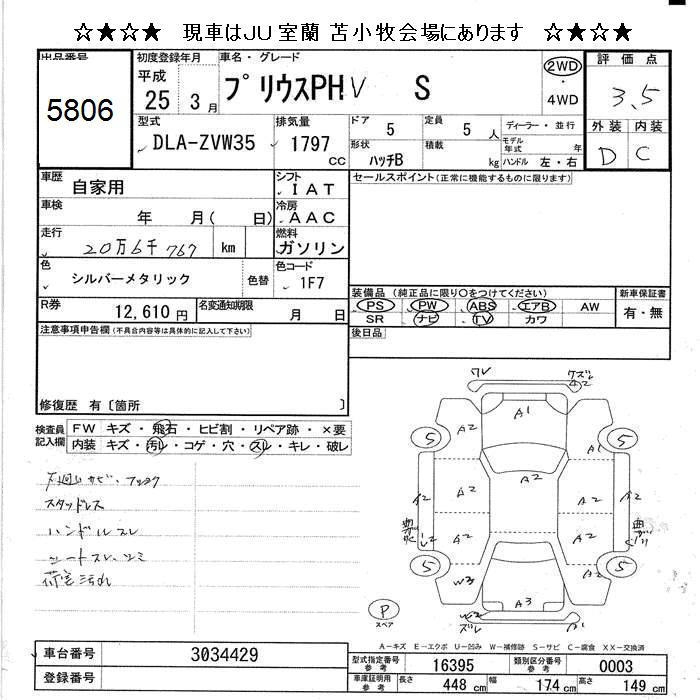 ☆★☆★ 現車はJU室蘭 苫小牧会場にあります ☆★☆★
出品番号
5806
初度登録年月
平成
25 3月
車名・グレード
プリウスPHV S
2WD
・
4WD
評価点
3.5
外装 内装
D C
型式
DLA-ZVW35
排気量
1797
cc
ドア
5
定員
5 人
ディーラー・並行
形状
ハッチB
積載
kg
モデル年式
年
ハンドル 左・右
車歴
自家用
シフト
IAT
車検
年 月( 日)
冷房
AAC
走行
20万6千767 km
燃料
ガソリン
色
シルバーメタリック
色替
色コード
1F7
R券
12,610円
名変通知期限
月 日
セールスポイント(正常に機能するものに限ります)
装備品 (純正品に限り○をつけてください)
PS PW ABS エアB AW
SR ナビ TV カワ
新車保証書
有・無
後日品
注意事項申告欄(不具合内容等は具体的に記入して下さい)
修復歴 有〔箇所 〕
検査員
記入欄
FW キズ・飛石・ヒビ割・リペア跡・×要
内装 キズ・汚レ・コゲ・穴・スレ・キレ・破レ
スタッドレス
ハンドルスレ
シートスレ、シミ
荷室汚れ
ワレ
ケズレ
A2
A1
A2
A1
5
5
A2
A2
A2
A2
A2
A2
A2
A2
5
5
W3
A2
A3
W2
ズレ
P
スペア
A-キズ E-エクボ U-凹み W-補修跡 S-サビ C-腐食 XX-交換済
車台番号
3034429
登録番号
型式指定番号
参考
16395
類別区分番号
参考
0003
車庫証明用
参考
長さ
448 cm
幅
174 cm
高さ
149 cm